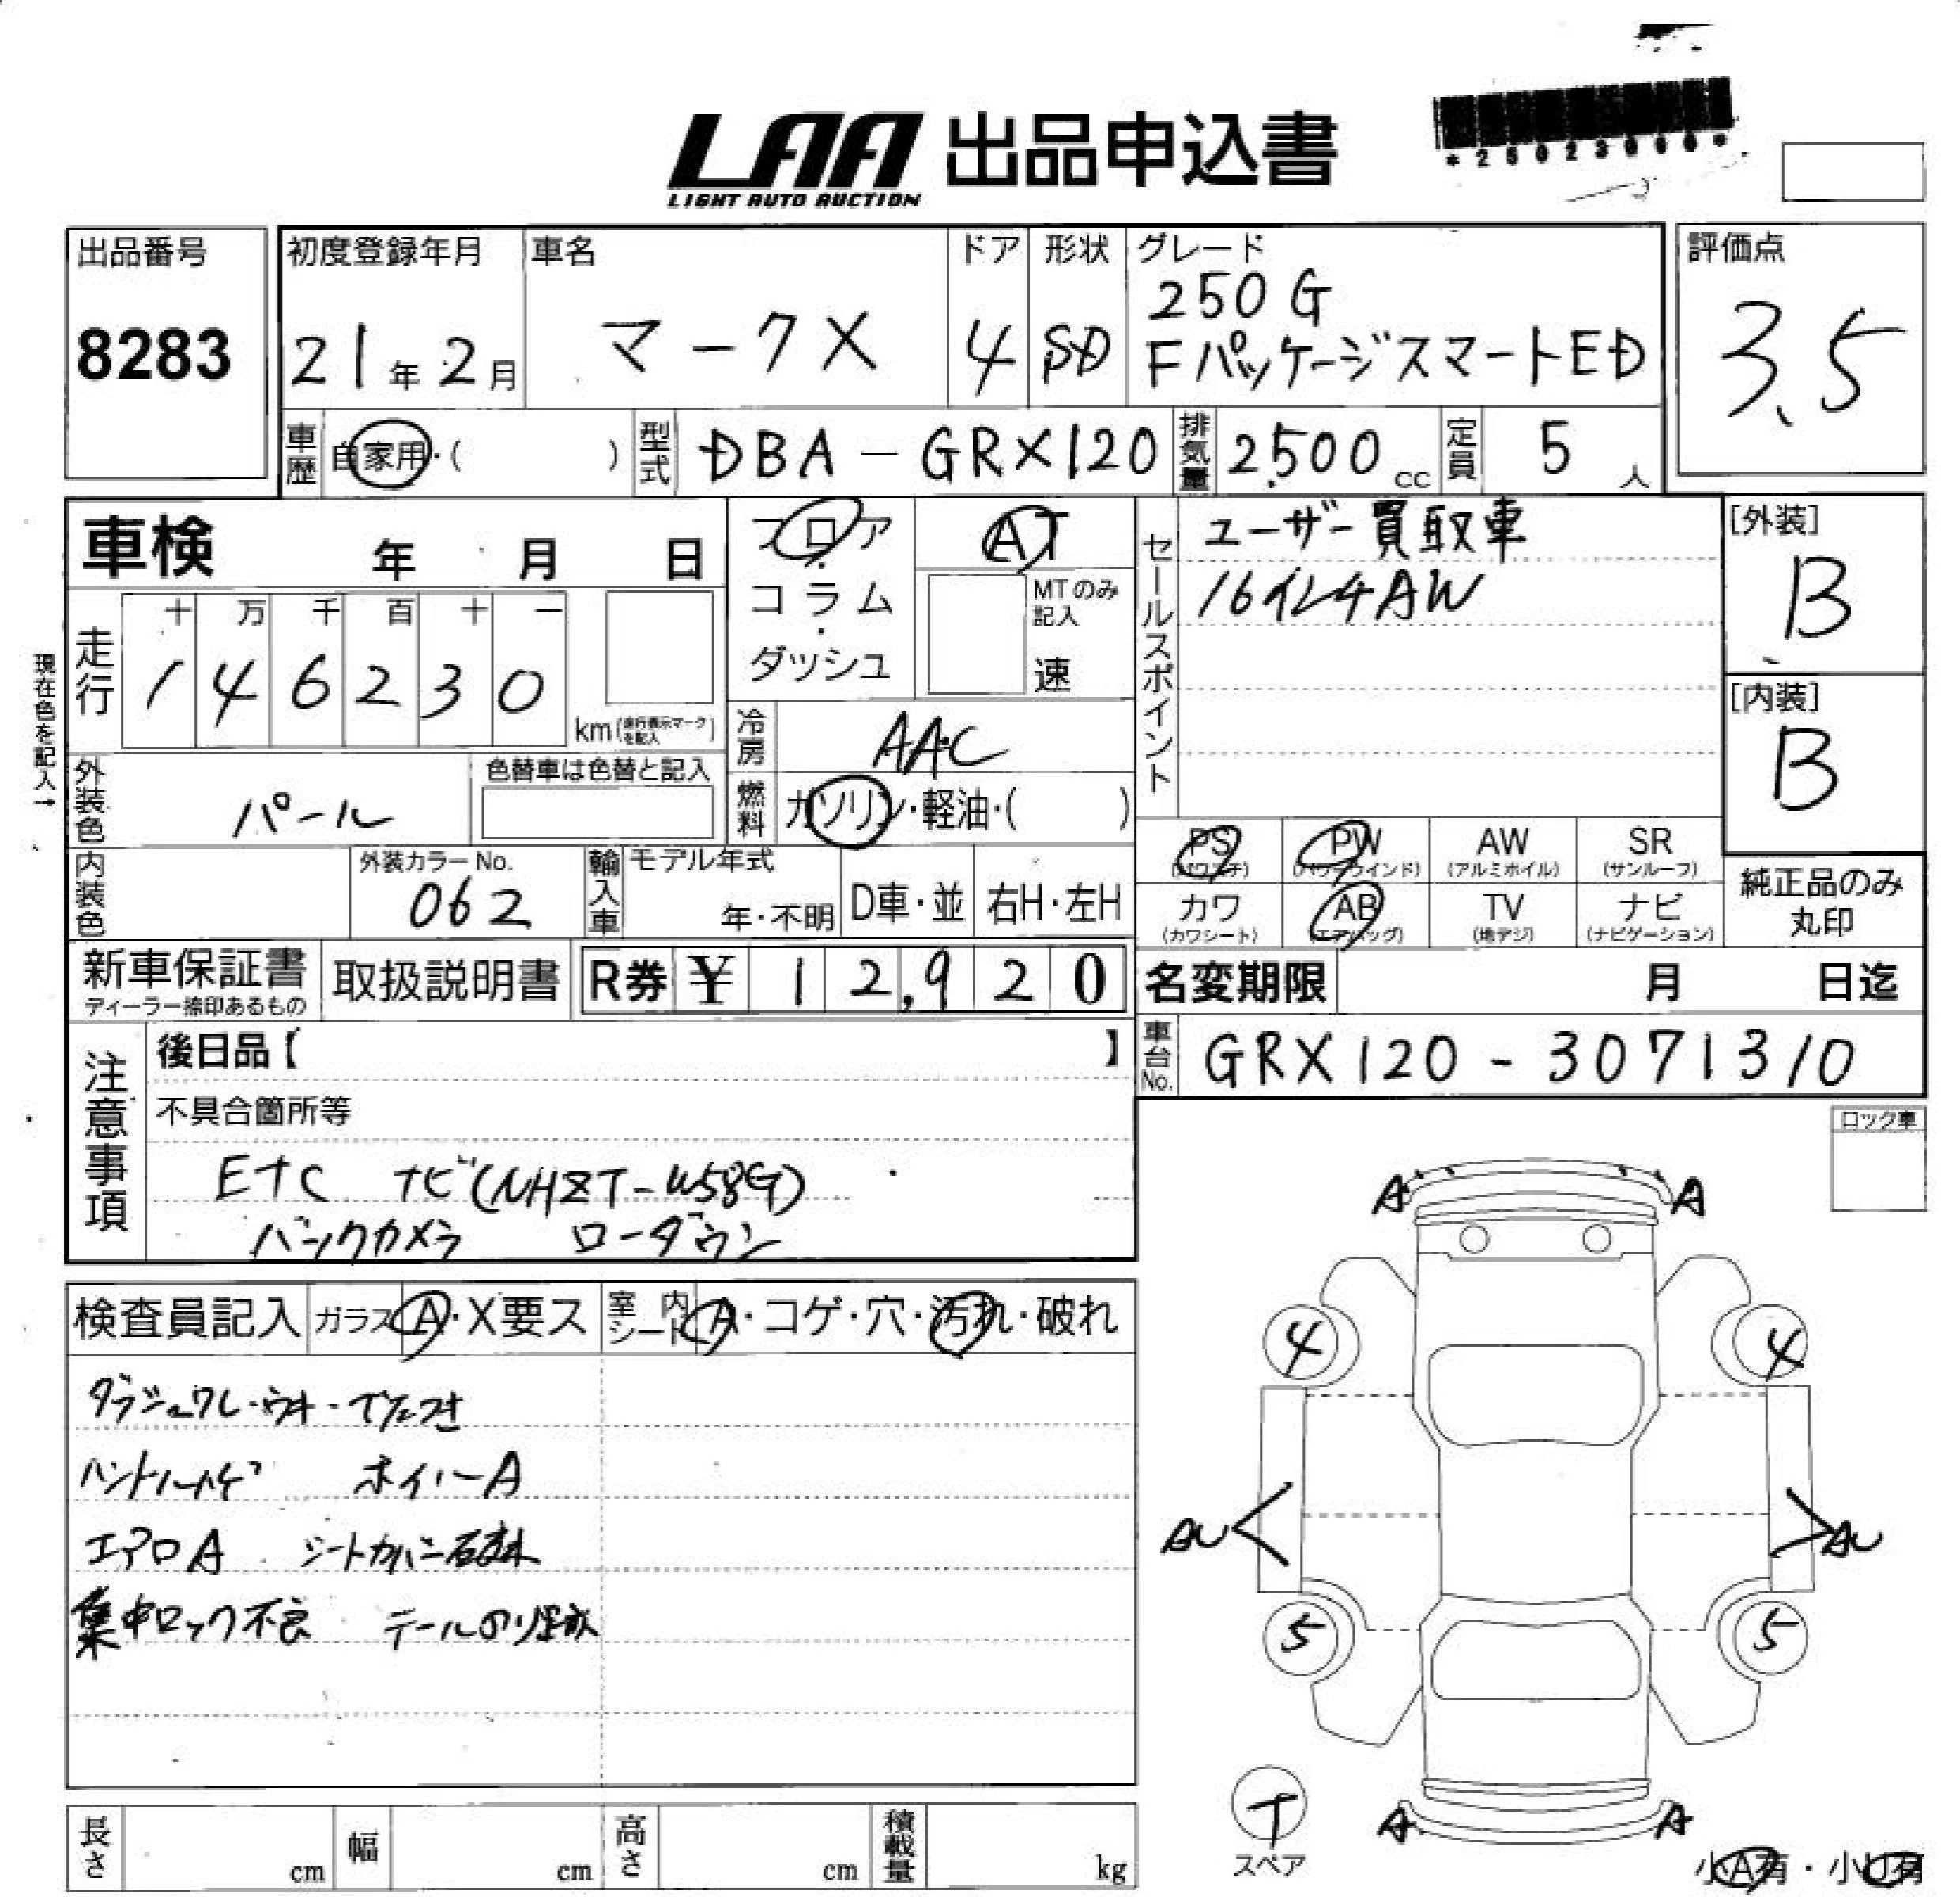 LAA 出品申込書
LIGHT AUTO AUCTION
*25023000*
出品番号
8283
初度登録年月
21年2月
車名
マークX
ドア
4
形状
SD
グレード
250G
FパッケージスマートED
評価点
3.5
車歴
自家用・( )
型式
DBA-GRX120
排気量
2,500cc
定員
5人
車検 年 月 日
フロア・コラム・ダッシュ
AT
MTのみ記入
速
セールスポイント
ユーザー買取車
16インチAW
[外装]
B
[内装]
B
現在色を記入→
走行
十 万 千 百 十 一
1 4 6 2 3 0
km(走行表示マークを記入)
冷房
AAC
外装色
パール
色替車は色替と記入
燃料
ガソリン・軽油・( )
PS PW AW SR
(パワステ) (パワーウインド) (アルミホイル) (サンルーフ)
カワ AB TV ナビ
(カワシート) (エアバッグ) (地デジ) (ナビゲーション)
純正品のみ丸印
内装色
外装カラーNo.
062
輸入車
モデル年式
年・不明
D車・並
右H・左H
新車保証書
ディーラー捺印あるもの
取扱説明書
R券 ¥ 12,920
名変期限 月 日迄
注意事項
後日品【 】
不具合箇所等
ETC ナビ(NHZT-W58G)
バックカメラ ローダウン
車台No.
GRX120-3071310
ロック車
A A
検査員記入
ガラス A・X要ス
室内シート A・コゲ・穴・汚れ・破れ
ハンドルハゲ ホイルA
エアロA シートカバー
集中ロック不良 テール
4 4
AU AU
5 5
T
スペア
A A
小A有・小U有
長さ cm
幅 cm
高さ cm
積載量 kg